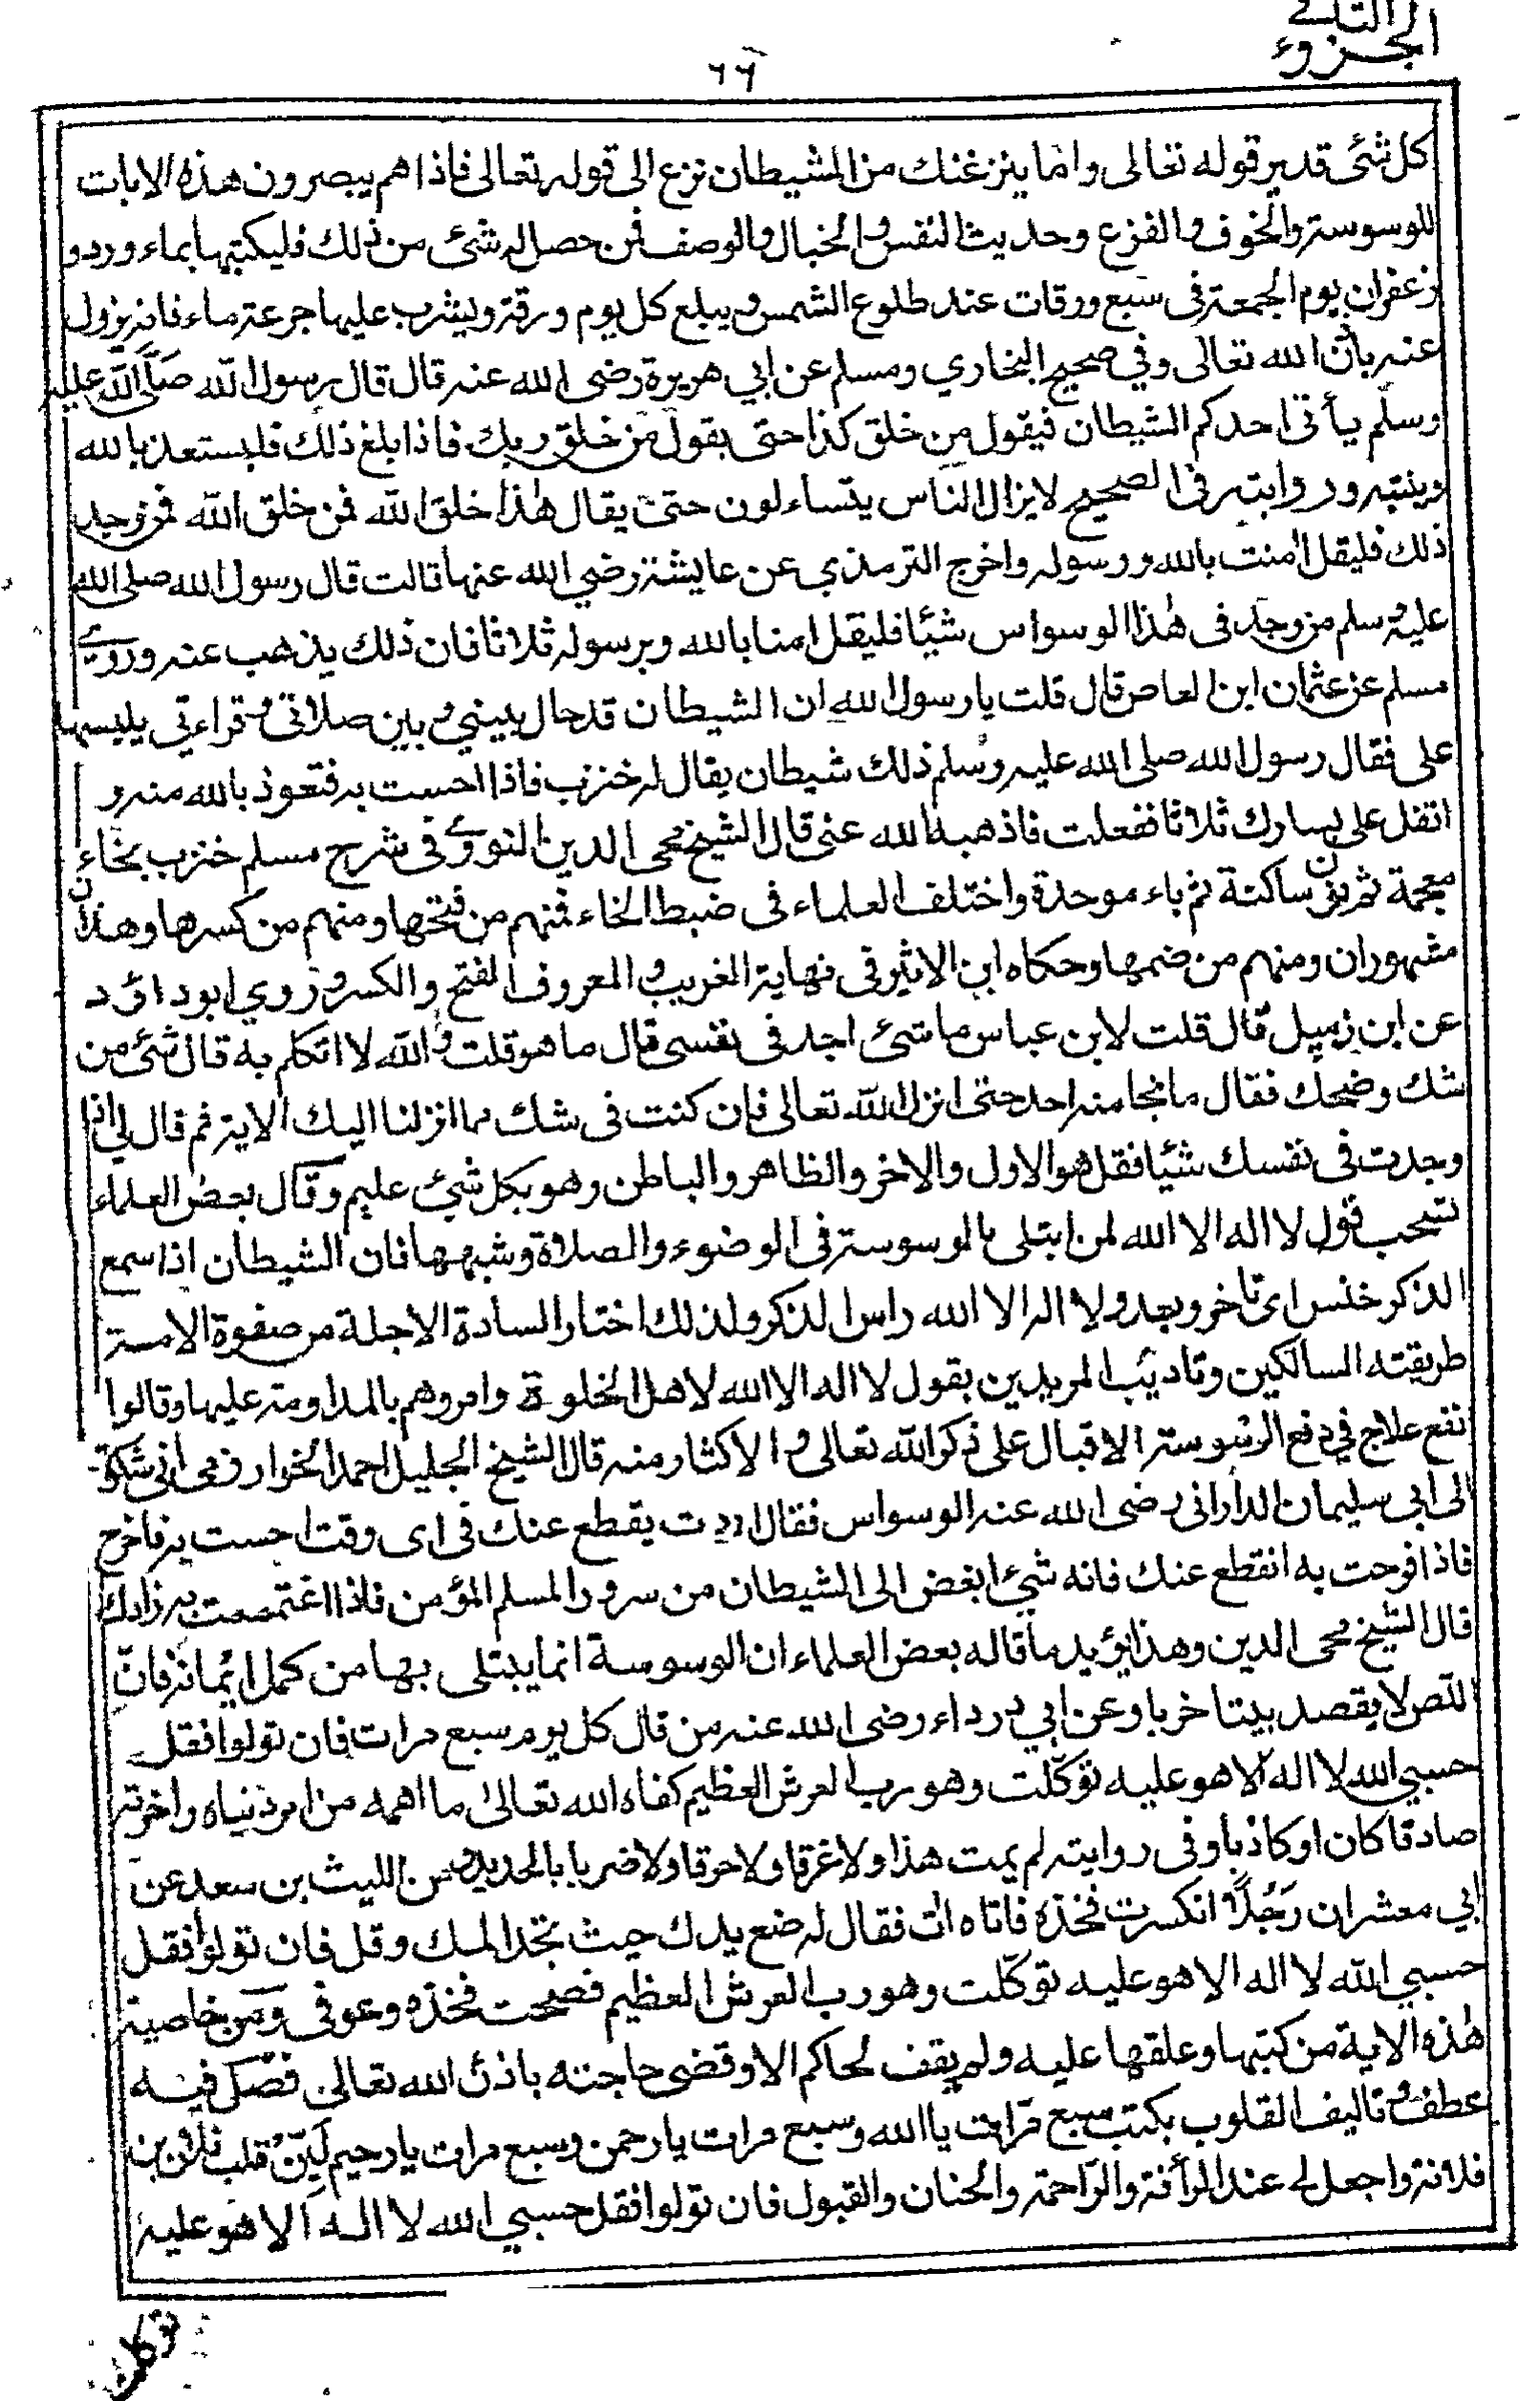 الجزوء الثانے
٦٦
كل شئ قدير قوله تعالى واما ينزغنك من الشيطان نزع الى قوله تعالى فاذا هم يبصرون هذه الايات
للوسوسة والخوف والفزع وحديث النفس والخبال والوصف فمن حصل له شئ من ذلك فليكتبها بماء ورد و
زعفران يوم الجمعة فى سبع ورقات عند طلوع الشمس ويبلع كل يوم ورقة ويشرب عليها جرعة ماء فانه يزول
عنه باذن الله تعالى وفي صحيح البخاري ومسلم عن ابي هريرة رضى الله عنه قال قال رسول الله صلى الله عليه
وسلم يأتى احدكم الشيطان فيقول من خلق كذا حتى يقول من خلق ربك فاذا بلغ ذلك فليستعذ بالله
وينته ورواية فى الصحيح لا يزال الناس يتساءلون حتى يقال هذا خلق الله فمن خلق الله فمن وجد
ذلك فليقل امنت بالله ورسوله واخرج الترمذي عن عايشة رضي الله عنها قالت قال رسول الله صلى الله
عليه وسلم من وجد فى هذا الوسواس شيئا فليقل امنا بالله وبرسوله ثلاثا فان ذلك يذهب عنه وروي
مسلم عن عثمان ابن العاص قال قلت يا رسول الله ان الشيطان قد حال بيني وبين صلاتى وقراءتي يلبسها
على فقال رسول الله صلى الله عليه وسلم ذلك شيطان يقال له خنزب فاذا احست به فتعوذ بالله منه و
اتفل على يسارك ثلاثا ففعلت فاذهبه الله عنى قال الشيخ محى الدين النووي فى شرح مسلم خنزب بخاء
معجمة ثم نون ساكنة ثم باء موحدة واختلف العلماء فى ضبط الخاء فمنهم من فتحها ومنهم من كسرها وهذان
مشهوران ومنهم من ضمها وحكاه ابن الاثير فى نهاية الغريب والمعروف الفتح والكسر وروي ابو داؤد
عن ابن زميل قال قلت لابن عباس ما شئ اجد فى نفسى قال ما هو قلت والله لا اتكلم به قال شئ من
شك وضحك فقال ما نجا منه احد حتى انزل الله تعالى فان كنت فى شك مما انزلنا اليك الاية ثم قال لى اذا
وجدت فى نفسك شيئا فقل هو الاول والاخر والظاهر والباطن وهو بكل شئ عليم وقال بعض العلماء
تستحب قول لا اله الا الله لمن ابتلى بالوسوسة فى الوضوء والصلاة وشبهها فان الشيطان اذا سمع
الذكر خنس اى تاخر وبعد ولا اله الا الله راس الذكر ولذلك اختار السادة الاجلة من صفوة الامة
طريقته السالكين وتاديب المريدين بقول لا اله الا الله لاهل الخلوة وامروهم بالمداومة عليها وقالوا
نفع علاج في دفع الوسوسة الاقبال على ذكر الله تعالى والاكثار منه قال الشيخ الجليل احمد الخوار في انى شكوت
الى ابى سليمان الدارانى رضى الله عنه الوسواس فقال اردت يقطع عنك فى اى وقت احست به فافرح
فاذا فرحت به انقطع عنك فانه شئ ابغض الى الشيطان من سرور المسلم المؤمن فاذا اغتممت به زادك
قال الشيخ محى الدين وهذا يؤيد ما قاله بعض العلماء ان الوسوسة انما يبتلى بها من كمل ايمانه فان
اللص لا يقصد بيتا خربا وعن ابي درداء رضى الله عنه من قال كل يوم سبع مرات فان تولوا فقل
حسبي الله لا اله الا هو عليه توكلت وهو رب العرش العظيم كفاه الله تعالى ما اهمه من امر دنياه واخرته
صادقا كان او كاذبا وفى رواية لم يمت هذا ولا غرقا ولا حرقا ولا ضربا بالحديد من الليث بن سعد عن
ابي معشر ان رجلا انكسرت فخذه فاتاه ات فقال له ضع يدك حيث تجد الملك وقل فان تولوا فقل
حسبي الله لا اله الا هو عليه توكلت وهو رب العرش العظيم فصحت فخذه وعوفى ومن خاصية
هذه الاية من كتبها وعلقها عليه ولم يقف لحاكم الا وقضى حاجته باذن الله تعالى فصل فيه
عطف وتاليف القلوب يكتب سبع مرات يا الله وسبع مرات يا رحمن وسبع مرات يا رحيم لين قلب فلان بن
فلانة واجعل لى عند الرأفة والراحمة والحنان والقبول فان تولوا فقل حسبي الله لا اله الا هو عليه
توكلت